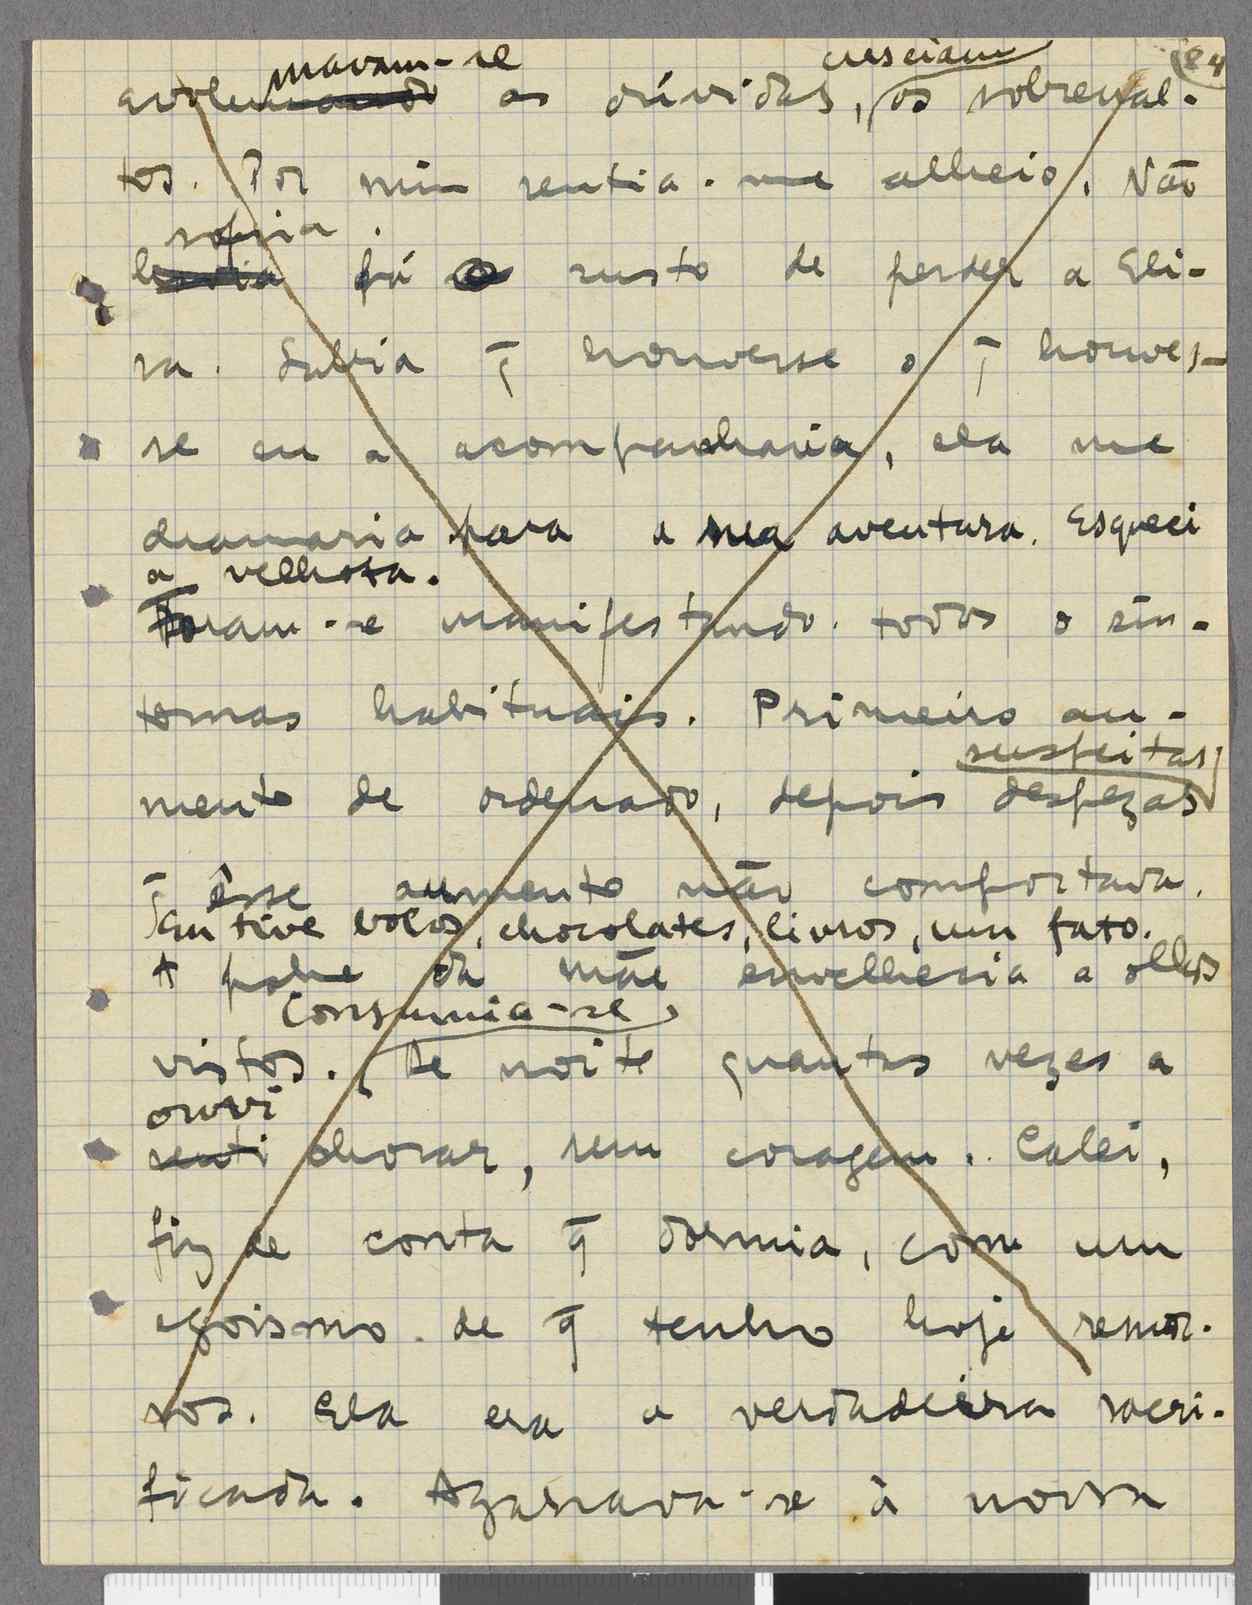 84
mavam-se cresciam
avolumando as dúvidas, os sobresal-
tos. Por mim sentia-me alheio. Não
sofria
já o susto de perder a Eli-
sa. Sabia q̄ houvesse o q̄ houves-
se eu a acompanharia, ela me
chamaria para a sua aventura. Esqueci
a velhota.
Foram-se manifestando todos o sin-
tomas habituais. Primeiro au-
suspeitas,
mento de ordenado, depois despezas
q̄ êsse aumento não comportava.
Eu tive bolos, chocolates, livros, um fato.
A pobre da mãe envelhecia a olhos
Consumia-se,
vistos. De noite quantas vezes a
ouvi
senti chorar, sem coragem. Calei,
fiz de conta q̄ dormia, com um
egoismo de q̄ tenho hoje remor-
sos. Ela era a verdadeira sacri-
ficada. Agarrava-se à nossa